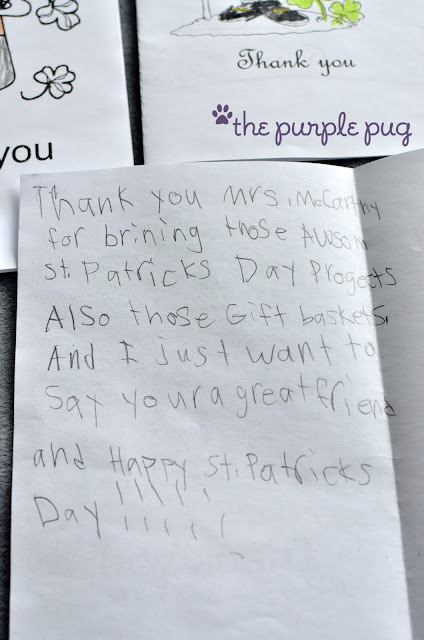 you
Thank you
the purple pug
Thank you Mrs. McCarthy
for brining those Awsom
st. Patricks Day Progects
Also those Gift baskets.
And I just want to
Say your a great friend
and Happy St. Patricks
Day !!!!!
!!!!!